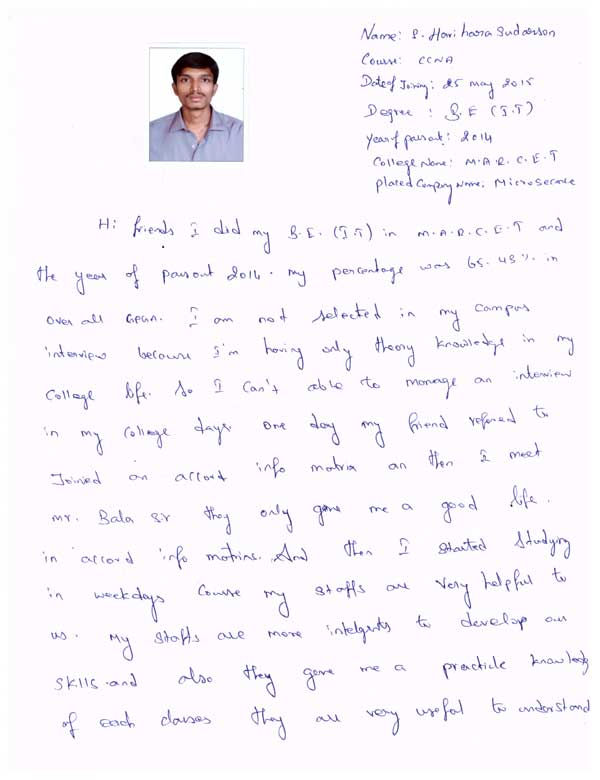 Name: S. Hari hara Sudarson
Course: CCNA
Date of Joining: 25 may 2015
Degree : B.E (I.T)
Year of passout: 2014
College Name: M.A.R.C.E.T
Placed Company Name: Microsecnce
Hi friends I did my B.E. (I.T) in M.A.R.C.E.T and
the year of passout 2014. my percentage was 65.43% in
over all . I am not selected in my campus
interview because I'm having only theory knowledge in my
College life. So I can't able to manage an interview
in my college days. One day my friend refered to
Joined an accord info matrix an then I meet
mr. Bala sir they only gave me a good life.
in accord info matrixs. And then I started Studying
in weekdays Course my staffs are very helpful to
us. my staffs are more to develop our
skills and also they gave me a practicle knowledg
of each classes they are very useful to understand